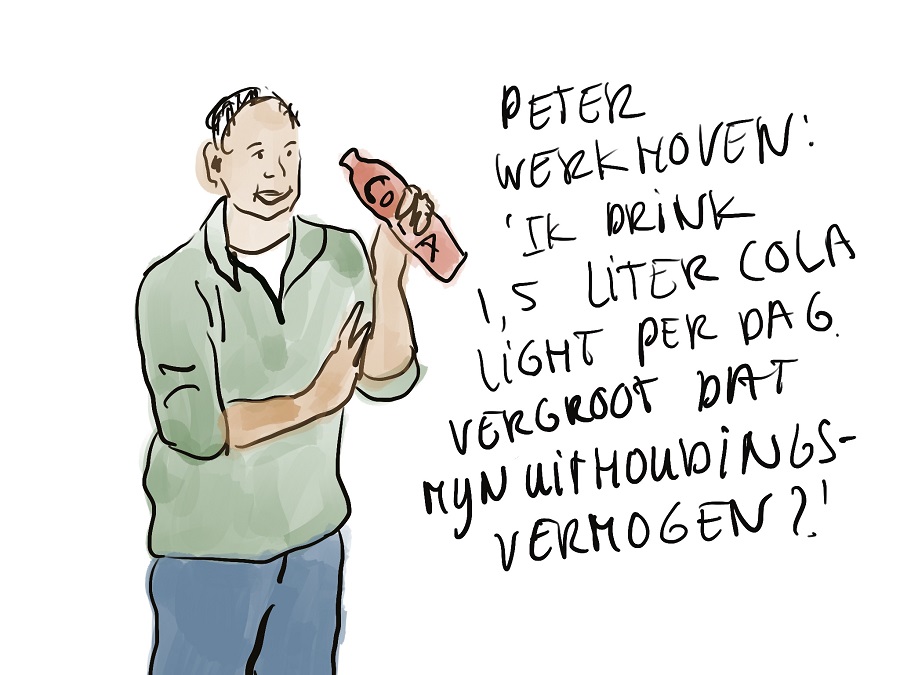 COLA
PETER
WERKHOVEN:
'IK DRINK
1,5 LITER COLA
LIGHT PER DAG.
VERGROOT DAT
MIJN UITHOUDINGS-
VERMOGEN?'